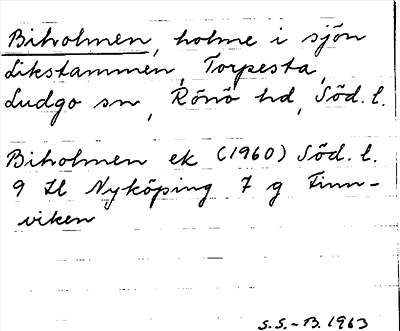 Biholmen, holme i sjön
Likstammen, Torpesta,
Ludgo sn, Rönö hd, Söd. l.
Biholmen ek (1960) Söd. l.
9 H Nyköping 7 g Finn-
viken
S.S.-B. 1963